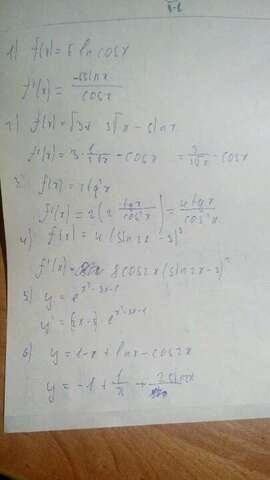 1) f(x) = 5 ln cosx
f'(x) = -5sinx / cosx
2) f(x) = √3x 3√x - sinx
f'(x) = 3 · 1/2√x - cosx = 3/2√x - cosx
3) f(x) = 2tg²x
f'(x) = 2(2 tgx/cos²x) = 4tgx/cos²x
4) f(x) = 4(sin2x - 3)³
f'(x) = 8cos2x(sin2x-3)²
5) y = e^x²-3x-1
y' = (2x-3) e^x²-3x-1
6) y = 1-x + lnx - cos2x
y = -1 + 1/x + 2sin2x